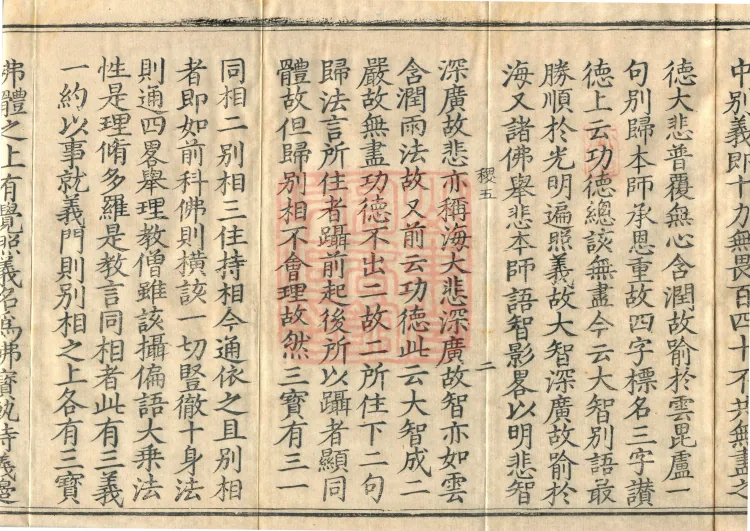 中別義即十力無畏百四十不共無盡之
德大悲普覆無心含潤故喻於雲毘盧一
句別歸本師承恩重故四字標名三字讚
德上云功德總該無盡今云大智別語最
勝順於光明遍照義故大智深廣故喻於
海又諸佛舉悲本師語智影畧以明悲智
稷五
二
深廣故悲亦稱海大悲深廣故智亦如雲
含潤雨法故又前云功德此云大智成二
嚴故無盡功德不出二故二所住下二句
歸法言所住者躡前起後所以躡者顯同
體故但歸別相不會理故然三寶有三一
同相二別相三住持相今通依之且別相
者即如前科佛則橫該一切豎徹十身法
則通四畧舉理教僧雖該攝偏語大乗法
性是理脩多羅是教言同相者此有三義
一約以事就義門則別相之上各有三寶
弗體之上有覺照義名爲佛寶軌持義邊